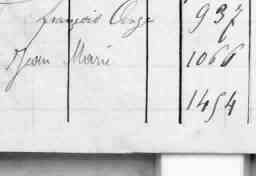 françois Ange 937
Jean Marie 1066
1454